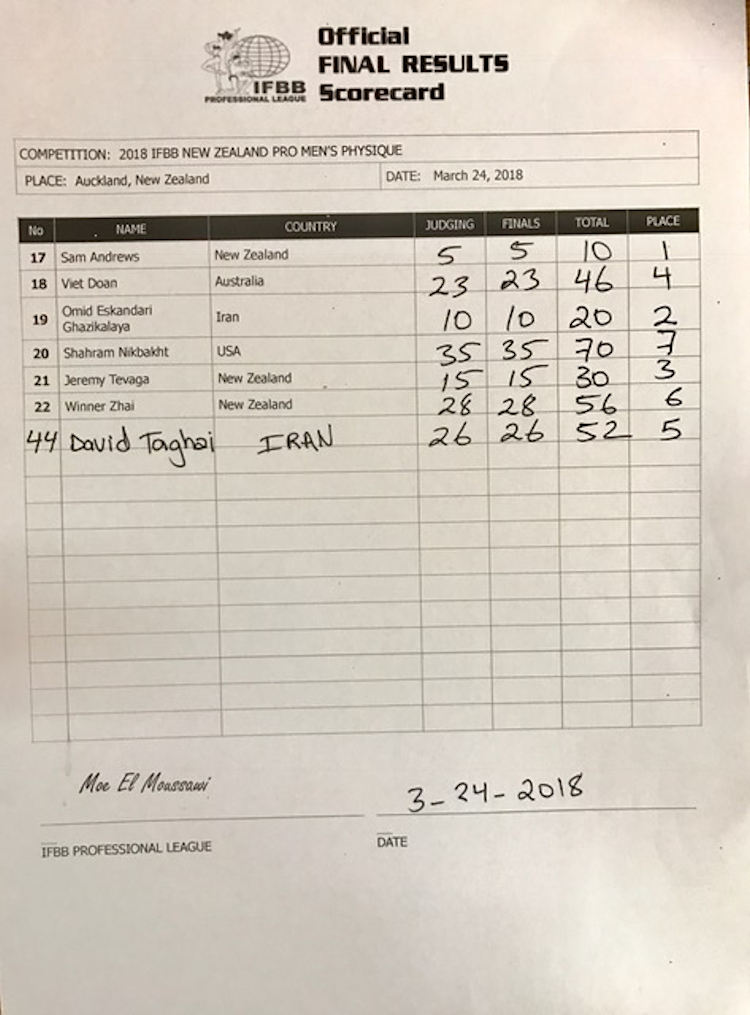 Official
FINAL RESULTS
Scorecard
IFBB
PROFESSIONAL LEAGUE
COMPETITION: 2018 IFBB NEW ZEALAND PRO MEN'S PHYSIQUE
PLACE: Auckland, New Zealand DATE: March 24, 2018
No NAME COUNTRY JUDGING FINALS TOTAL PLACE
17 Sam Andrews New Zealand 5 5 10 1
18 Viet Doan Australia 23 23 46 4
19 Omid Eskandari
Ghazikalaya Iran 10 10 20 2
20 Shahram Nikbakht USA 35 35 70 7
21 Jeremy Tevaga New Zealand 15 15 30 3
22 Winner Zhai New Zealand 28 28 56 6
44 David Taghai IRAN 26 26 52 5
Moe El Moussawi 3-24-2018
IFBB PROFESSIONAL LEAGUE DATE